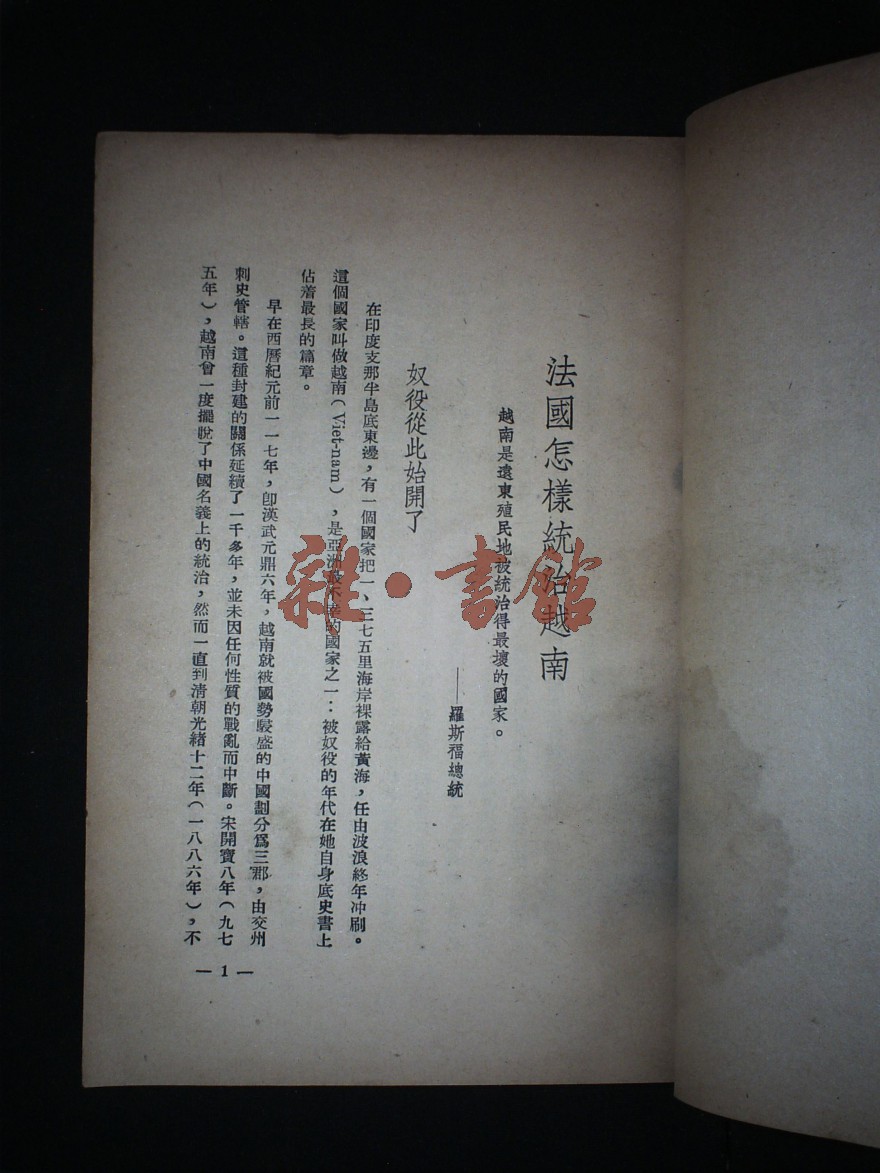 法國怎樣統治越南
越南是遠東殖民地被統治得最壞的國家。
——羅斯福總統
奴役從此始開了
在印度支那半島底東邊，有一個國家把一、三七五里海岸裸露給黃海，任由波浪終年冲刷。
這個國家叫做越南（Viet-nam），是亞洲最不幸的國家之一：被奴役的年代在她自身底史書上
佔着最長的篇章。
早在西曆紀元前一一七年，卽漢武元鼎六年，越南就被國勢最盛的中國劃分爲三郡，由交州
刺史管轄。這種封建的關係延續了一千多年，並未因任何性質的戰亂而中斷。宋開寶八年（九七
五年），越南曾一度擺脫了中國名義上的統治，然而一直到清朝光緒十二年（一八八六年），不
— 1 —
雜·書館